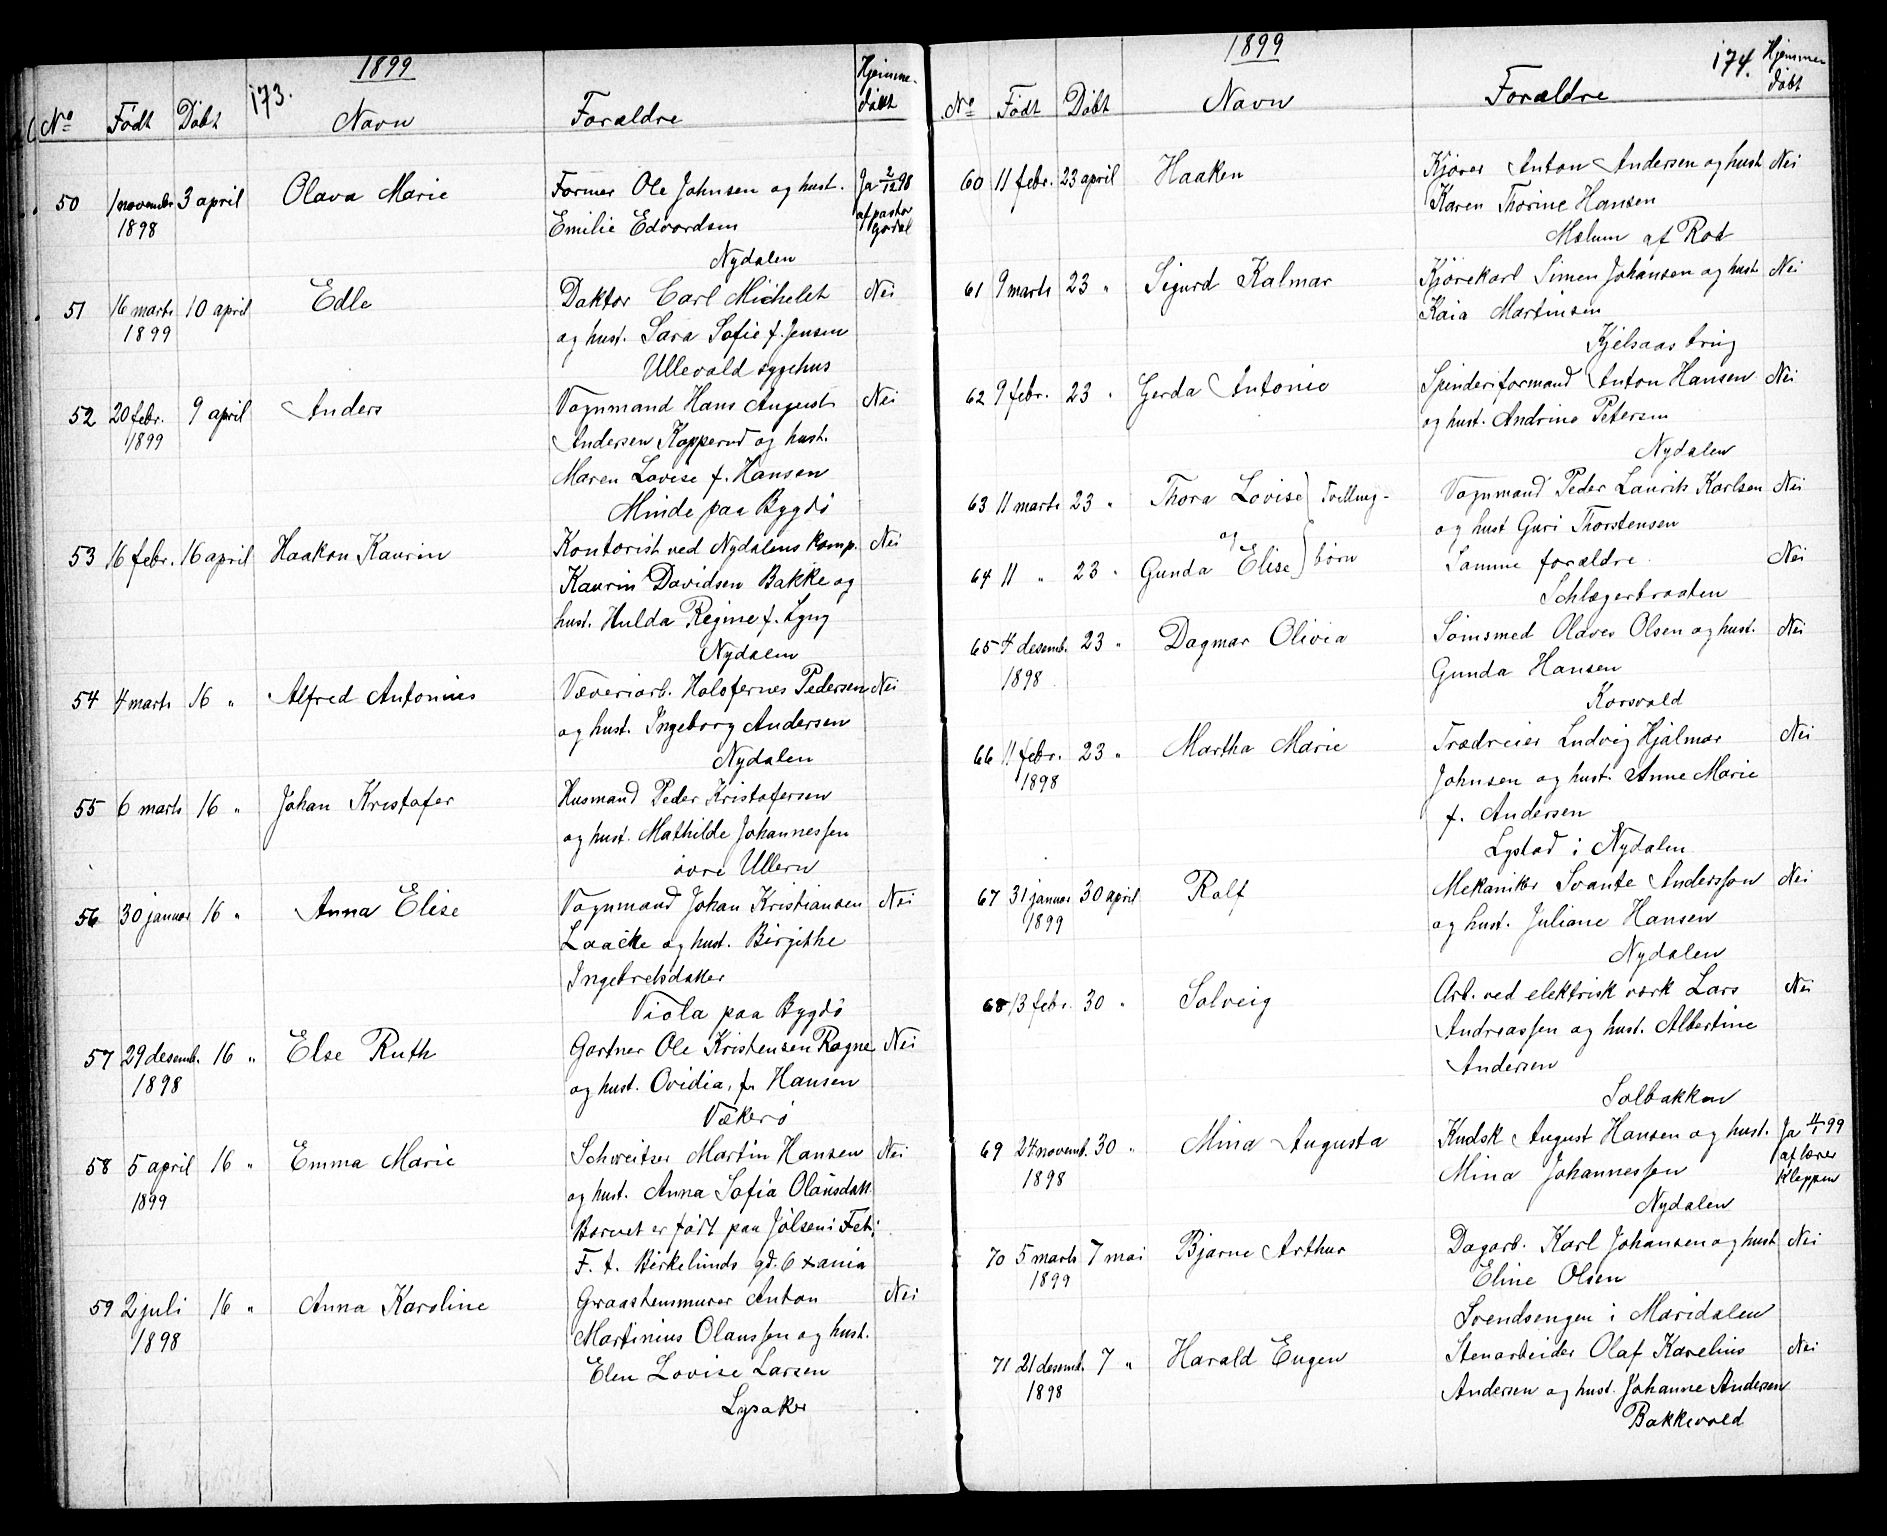 1899
173.
No Født Døbt Navn Forældre Hjemme-
døbt
50 1 novembr 3 april Olava Marie Former Ole Johnsen og hust. Ja 2/12 98
1898 Emilie Edvardsen af pastor
Nydalen
51 16 marts 10 april Edle Doktor Carl Michelet Nei
1899 og hust. Sara Sofie f. Jensen
Ullevold sygehus
52 20 febr. 9 april Anders Vognmand Hans August Nei
1899 Andersen Kopperud og hust.
Maren Lovise f. Hansen
Minde paa Bygdø
53 16 febr. 16 april Haakon Kaurin Kontorist ved Nydalens komp. Nei
Kaurin Davidsen Bakke og
hust. Hulda Regine f. Lyng
Nydalen
54 4 marts 16 " Alfred Antonius Væveriarb. Holofernes Pedersen Nei
og hust. Ingeborg Andersen
Nydalen
55 6 marts 16 " Johan Kristofer Husmand Peder Kristofersen
og hust. Mathilde Johannessen
øvre Ullern
56 30 januar 16 " Anna Elise Vognmand Johan Kristiansen Nei
Laache og hust. Birgithe
Ingebretsdatter
Viola paa Bygdø
57 29 desemb. 16 " Else Ruth Gartner Ole Kristensen Rogne Nei
1898 og hust. Ovidia, f. Hansen
Vækerø
58 5 april 16 " Emma Marie Schweitser Martin Hansen Nei
1899 og hust. Anna Sofia Olausdatt.
Barnet er født paa Jølsen i Fet;
F. t. Birkelunds gd. 6 Xania
59 2 juli 16 " Anna Karoline Graastensmurer Anton Nei
1898 Martinius Olaussen og hust.
Elen Lovise Larsen
Lysaker
1899
174.
No Født Døbt Navn Forældre Hjemme
døbt
60 11 febr. 23 april Haaken Kjører Anton Andersen og hust Nei
Karen Thorine Hansen
Mælum af Rod
61 9 marts 23 " Sigurd Kalmar Kjørekarl Simen Johansen og hust Nei
Kaia Martinsen
Kjelsaas brug
62 9 febr. 23 " Gerda Antonie Spinderiformand Anton Hansen Nei
og hust. Andrine Petersen
Nydalen
63 11 marts 23 " Thora Lovise Tvilling- Vognmand Peder Laurits Karlsen Nei
og og hust Guri Thorstensen
64 11 " 23 " Gunda Elise børn Samme forældre Nei
Schlægerbraaten
65 4 desemb. 23 " Dagmar Olivia Sømsmed Olaves Olsen og hust. Nei
1898 Gunda Hansen
Korsvold
66 11 febr. 23 " Martha Marie Trædreier Ludvig Hjalmar Nei
1898 Johnsen og hust. Anne Marie
f. Andersen
Lystad i Nydalen
67 31 januar 30 april Rolf Mekaniker Svante Andersson Nei
1899 og hust. Juliane Hansen
Nydalen
68 13 febr. 30 " Solveig Arb. ved elektrisk værk Lars Nei
Andreassen og hust. Albertine
Andersen
Solbakken
69 24 novemb. 30 " Mina Augusta Kudsk August Hansen og hust. Ja 4/1 99
1898 Mina Johannessen af lærer
Kleppen
Nydalen
70 5 marts 7 mai Bjarne Arthur Dagarb. Karl Johansen og hust Nei
1899 Eline Olsen
Svendsengen i Maridalen
71 21 desemb. 7 " Harald Eugen Stenarbeider Olaf Karelius Nei
1898 Andersen og hust. Johanne Andersen
Bakkevold